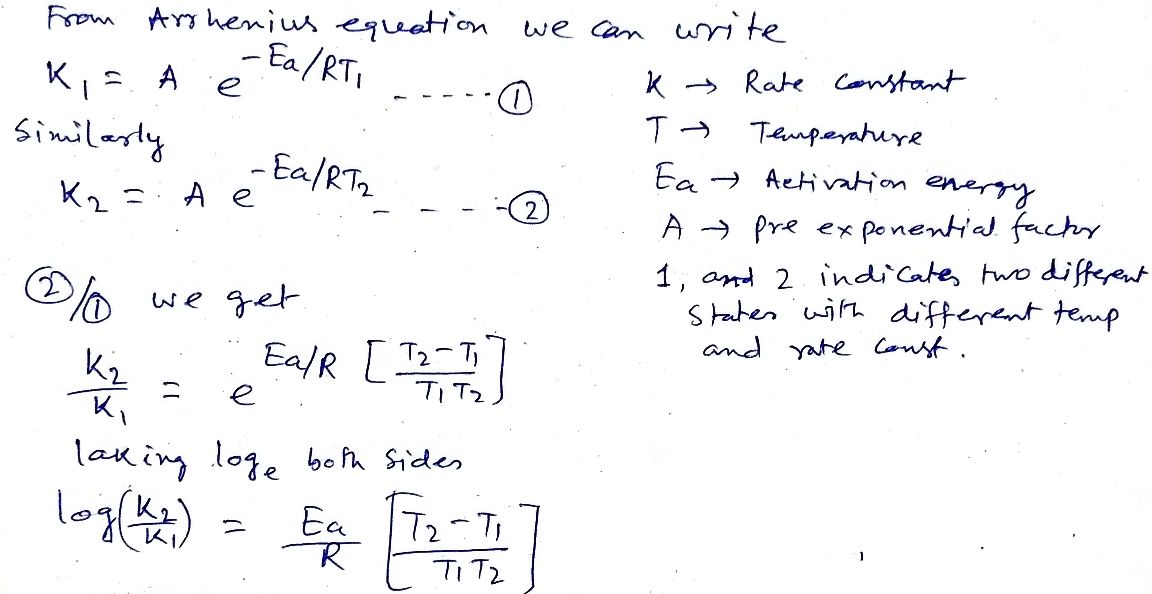 From Arrhenius equation we can write
K₁ = A e^(-Ea/RT₁) ------ ①
Similarly
K₂ = A e^(-Ea/RT₂) - - - - - ②
②/① we get
K₂/K₁ = e^(Ea/R [(T₂-T₁)/(T₁T₂)])
taking logₑ both sides
log(K₂/K₁) = Ea/R [(T₂-T₁)/(T₁T₂)]
K → Rate constant
T → Temperature
Ea → Activation energy
A → Pre exponential factor
1, and 2 indicates two different
states with different temp
and rate const.